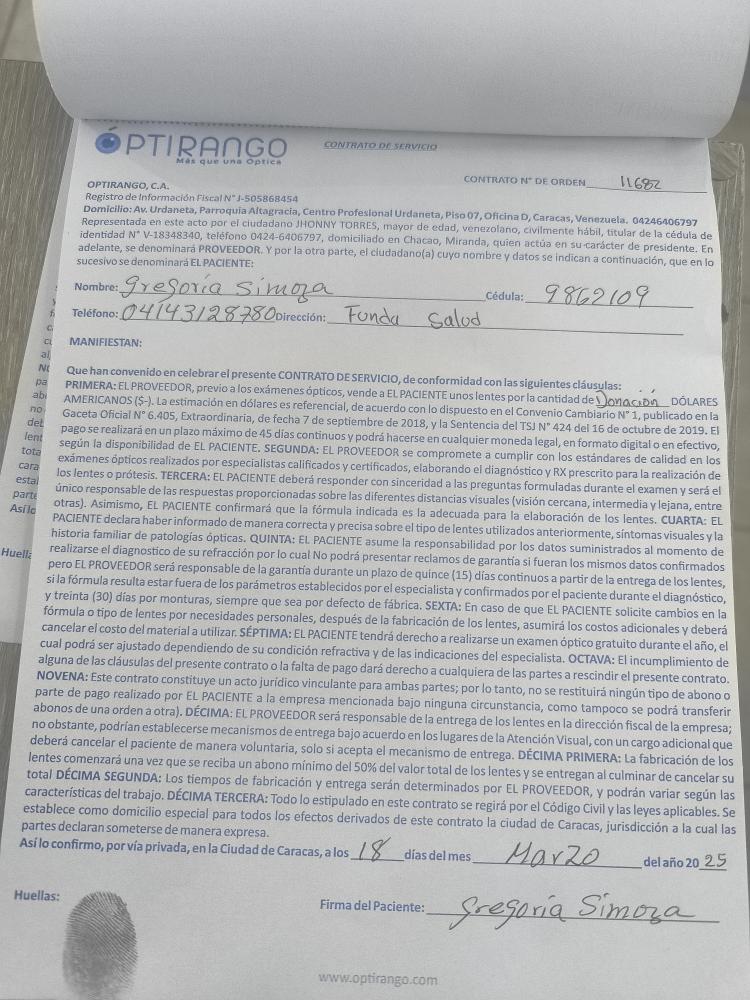 ÓPTIRANGO
Más que una Optica
CONTRATO DE SERVICIO
CONTRATO N° DE ORDEN 11682
OPTIRANGO, C.A.
Registro de Información Fiscal N° J-505868454
Domicilio: Av. Urdaneta, Parroquia Altagracia, Centro Profesional Urdaneta, Piso 07, Oficina D, Caracas, Venezuela. 04246406797
Representada en este acto por el ciudadano JHONNY TORRES, mayor de edad, venezolano, civilmente hábil, titular de la cédula de
identidad N° V-18348340, teléfono 0424-6406797, domiciliado en Chacao, Miranda, quien actúa en su carácter de presidente. En
adelante, se denominará PROVEEDOR. Y por la otra parte, el ciudadano(a) cuyo nombre y datos se indican a continuación, que en lo
sucesivo se denominará EL PACIENTE:
Nombre: Gregoria Simoza Cédula: 9862109
Teléfono: 04143128780 Dirección: Funda Salud
MANIFIESTAN:
Que han convenido en celebrar el presente CONTRATO DE SERVICIO, de conformidad con las siguientes cláusulas:
PRIMERA: EL PROVEEDOR, previo a los exámenes ópticos, vende a EL PACIENTE unos lentes por la cantidad de Donación DÓLARES
AMERICANOS ($-). La estimación en dólares es referencial, de acuerdo con lo dispuesto en el Convenio Cambiario N° 1, publicado en la
Gaceta Oficial N° 6.405, Extraordinaria, de fecha 7 de septiembre de 2018, y la Sentencia del TSJ N° 424 del 16 de octubre de 2019. El
pago se realizará en un plazo máximo de 45 días continuos y podrá hacerse en cualquier moneda legal, en formato digital o en efectivo,
según la disponibilidad de EL PACIENTE. SEGUNDA: EL PROVEEDOR se compromete a cumplir con los estándares de calidad en los
exámenes ópticos realizados por especialistas calificados y certificados, elaborando el diagnóstico y RX prescrito para la realización de
los lentes o prótesis. TERCERA: EL PACIENTE deberá responder con sinceridad a las preguntas formuladas durante el examen y será el
único responsable de las respuestas proporcionadas sobre las diferentes distancias visuales (visión cercana, intermedia y lejana, entre
otras). Asimismo, EL PACIENTE confirmará que la fórmula indicada es la adecuada para la elaboración de los lentes. CUARTA: EL
PACIENTE declara haber informado de manera correcta y precisa sobre el tipo de lentes utilizados anteriormente, síntomas visuales y la
historia familiar de patologías ópticas. QUINTA: EL PACIENTE asume la responsabilidad por los datos suministrados al momento de
realizarse el diagnostico de su refracción por lo cual No podrá presentar reclamos de garantía si fueran los mismos datos confirmados
pero EL PROVEEDOR será responsable de la garantía durante un plazo de quince (15) días continuos a partir de la entrega de los lentes,
si la fórmula resulta estar fuera de los parámetros establecidos por el especialista y confirmados por el paciente durante el diagnóstico,
y treinta (30) días por monturas, siempre que sea por defecto de fábrica. SEXTA: En caso de que EL PACIENTE solicite cambios en la
fórmula o tipo de lentes por necesidades personales, después de la fabricación de los lentes, asumirá los costos adicionales y deberá
cancelar el costo del material a utilizar. SÉPTIMA: EL PACIENTE tendrá derecho a realizarse un examen óptico gratuito durante el año, el
cual podrá ser ajustado dependiendo de su condición refractiva y de las indicaciones del especialista. OCTAVA: El incumplimiento de
alguna de las cláusulas del presente contrato o la falta de pago dará derecho a cualquiera de las partes a rescindir el presente contrato.
NOVENA: Este contrato constituye un acto jurídico vinculante para ambas partes; por lo tanto, no se restituirá ningún tipo de abono o
parte de pago realizado por EL PACIENTE a la empresa mencionada bajo ninguna circunstancia, como tampoco se podrá transferir
abonos de una orden a otra). DÉCIMA: EL PROVEEDOR será responsable de la entrega de los lentes en la dirección fiscal de la empresa;
no obstante, podrían establecerse mecanismos de entrega bajo acuerdo en los lugares de la Atención Visual, con un cargo adicional que
deberá cancelar el paciente de manera voluntaria, solo si acepta el mecanismo de entrega. DÉCIMA PRIMERA: La fabricación de los
lentes comenzará una vez que se reciba un abono mínimo del 50% del valor total de los lentes y se entregan al culminar de cancelar su
total DÉCIMA SEGUNDA: Los tiempos de fabricación y entrega serán determinados por EL PROVEEDOR, y podrán variar según las
características del trabajo. DÉCIMA TERCERA: Todo lo estipulado en este contrato se regirá por el Código Civil y las leyes aplicables. Se
establece como domicilio especial para todos los efectos derivados de este contrato la ciudad de Caracas, jurisdicción a la cual las
partes declaran someterse de manera expresa.
Así lo confirmo, por vía privada, en la Ciudad de Caracas, a los 18 días del mes Marzo del año 20 25
Huellas:
Firma del Paciente: Gregoria Simoza
www.optirango.com